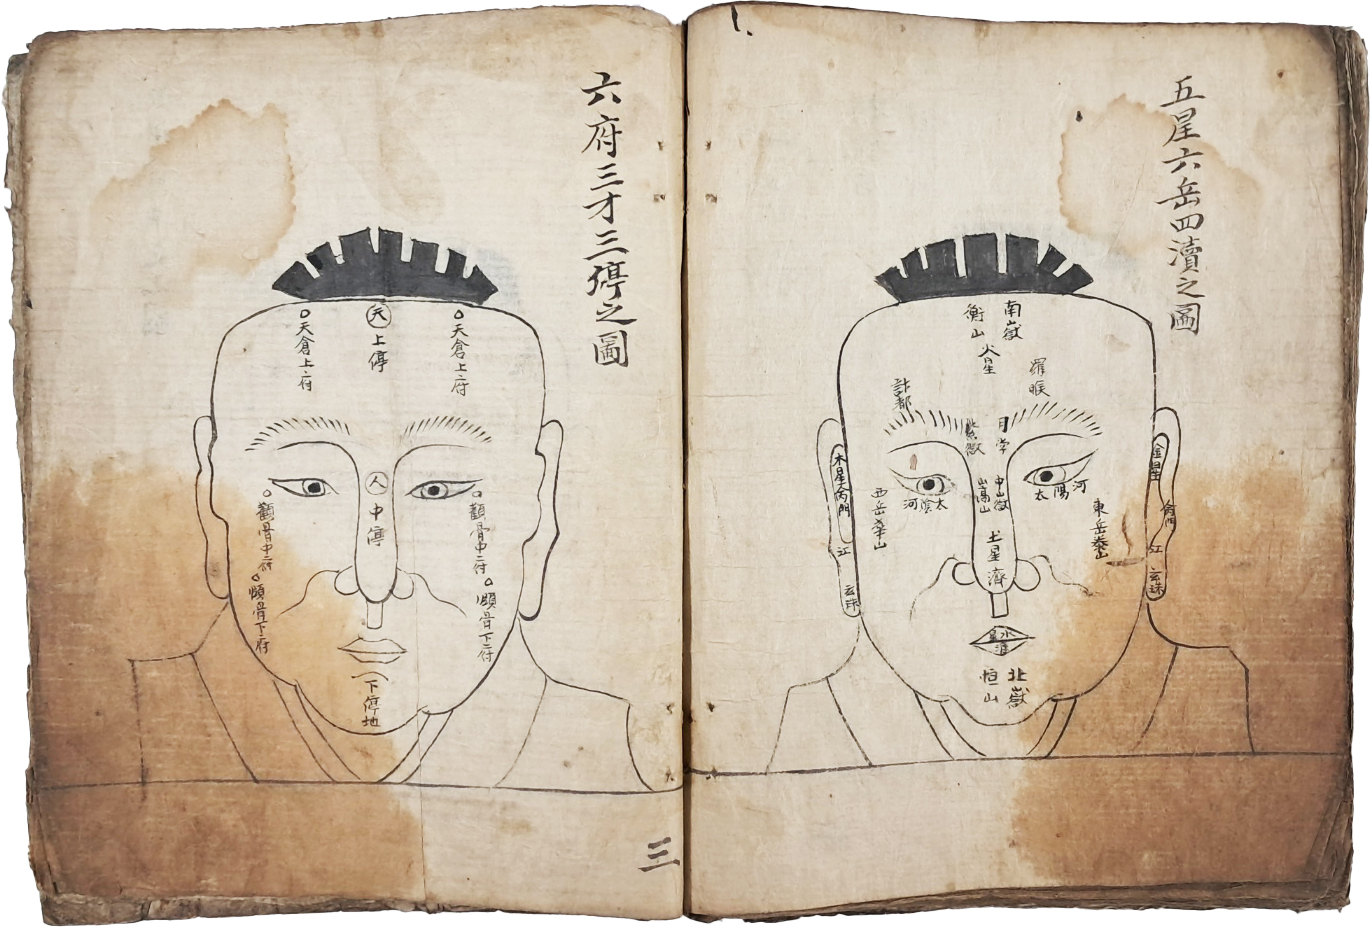 五星六岳四瀆之圖
南嶽
衡山
火星
羅睺
計都
月孛
紫
嶽
中嶽
山嵩山
太陽河
太陰河
東岳泰山
西岳華山
金星
木星
門
門
江
江
玄珠
玄珠
土星
濟
水星
淮
北嶽
恒山
六府三才三停之圖
天
上停
天倉上府
天倉上府
人
中停
顴骨中府
顴骨中府
頤骨下府
頤骨下府
下停地
三